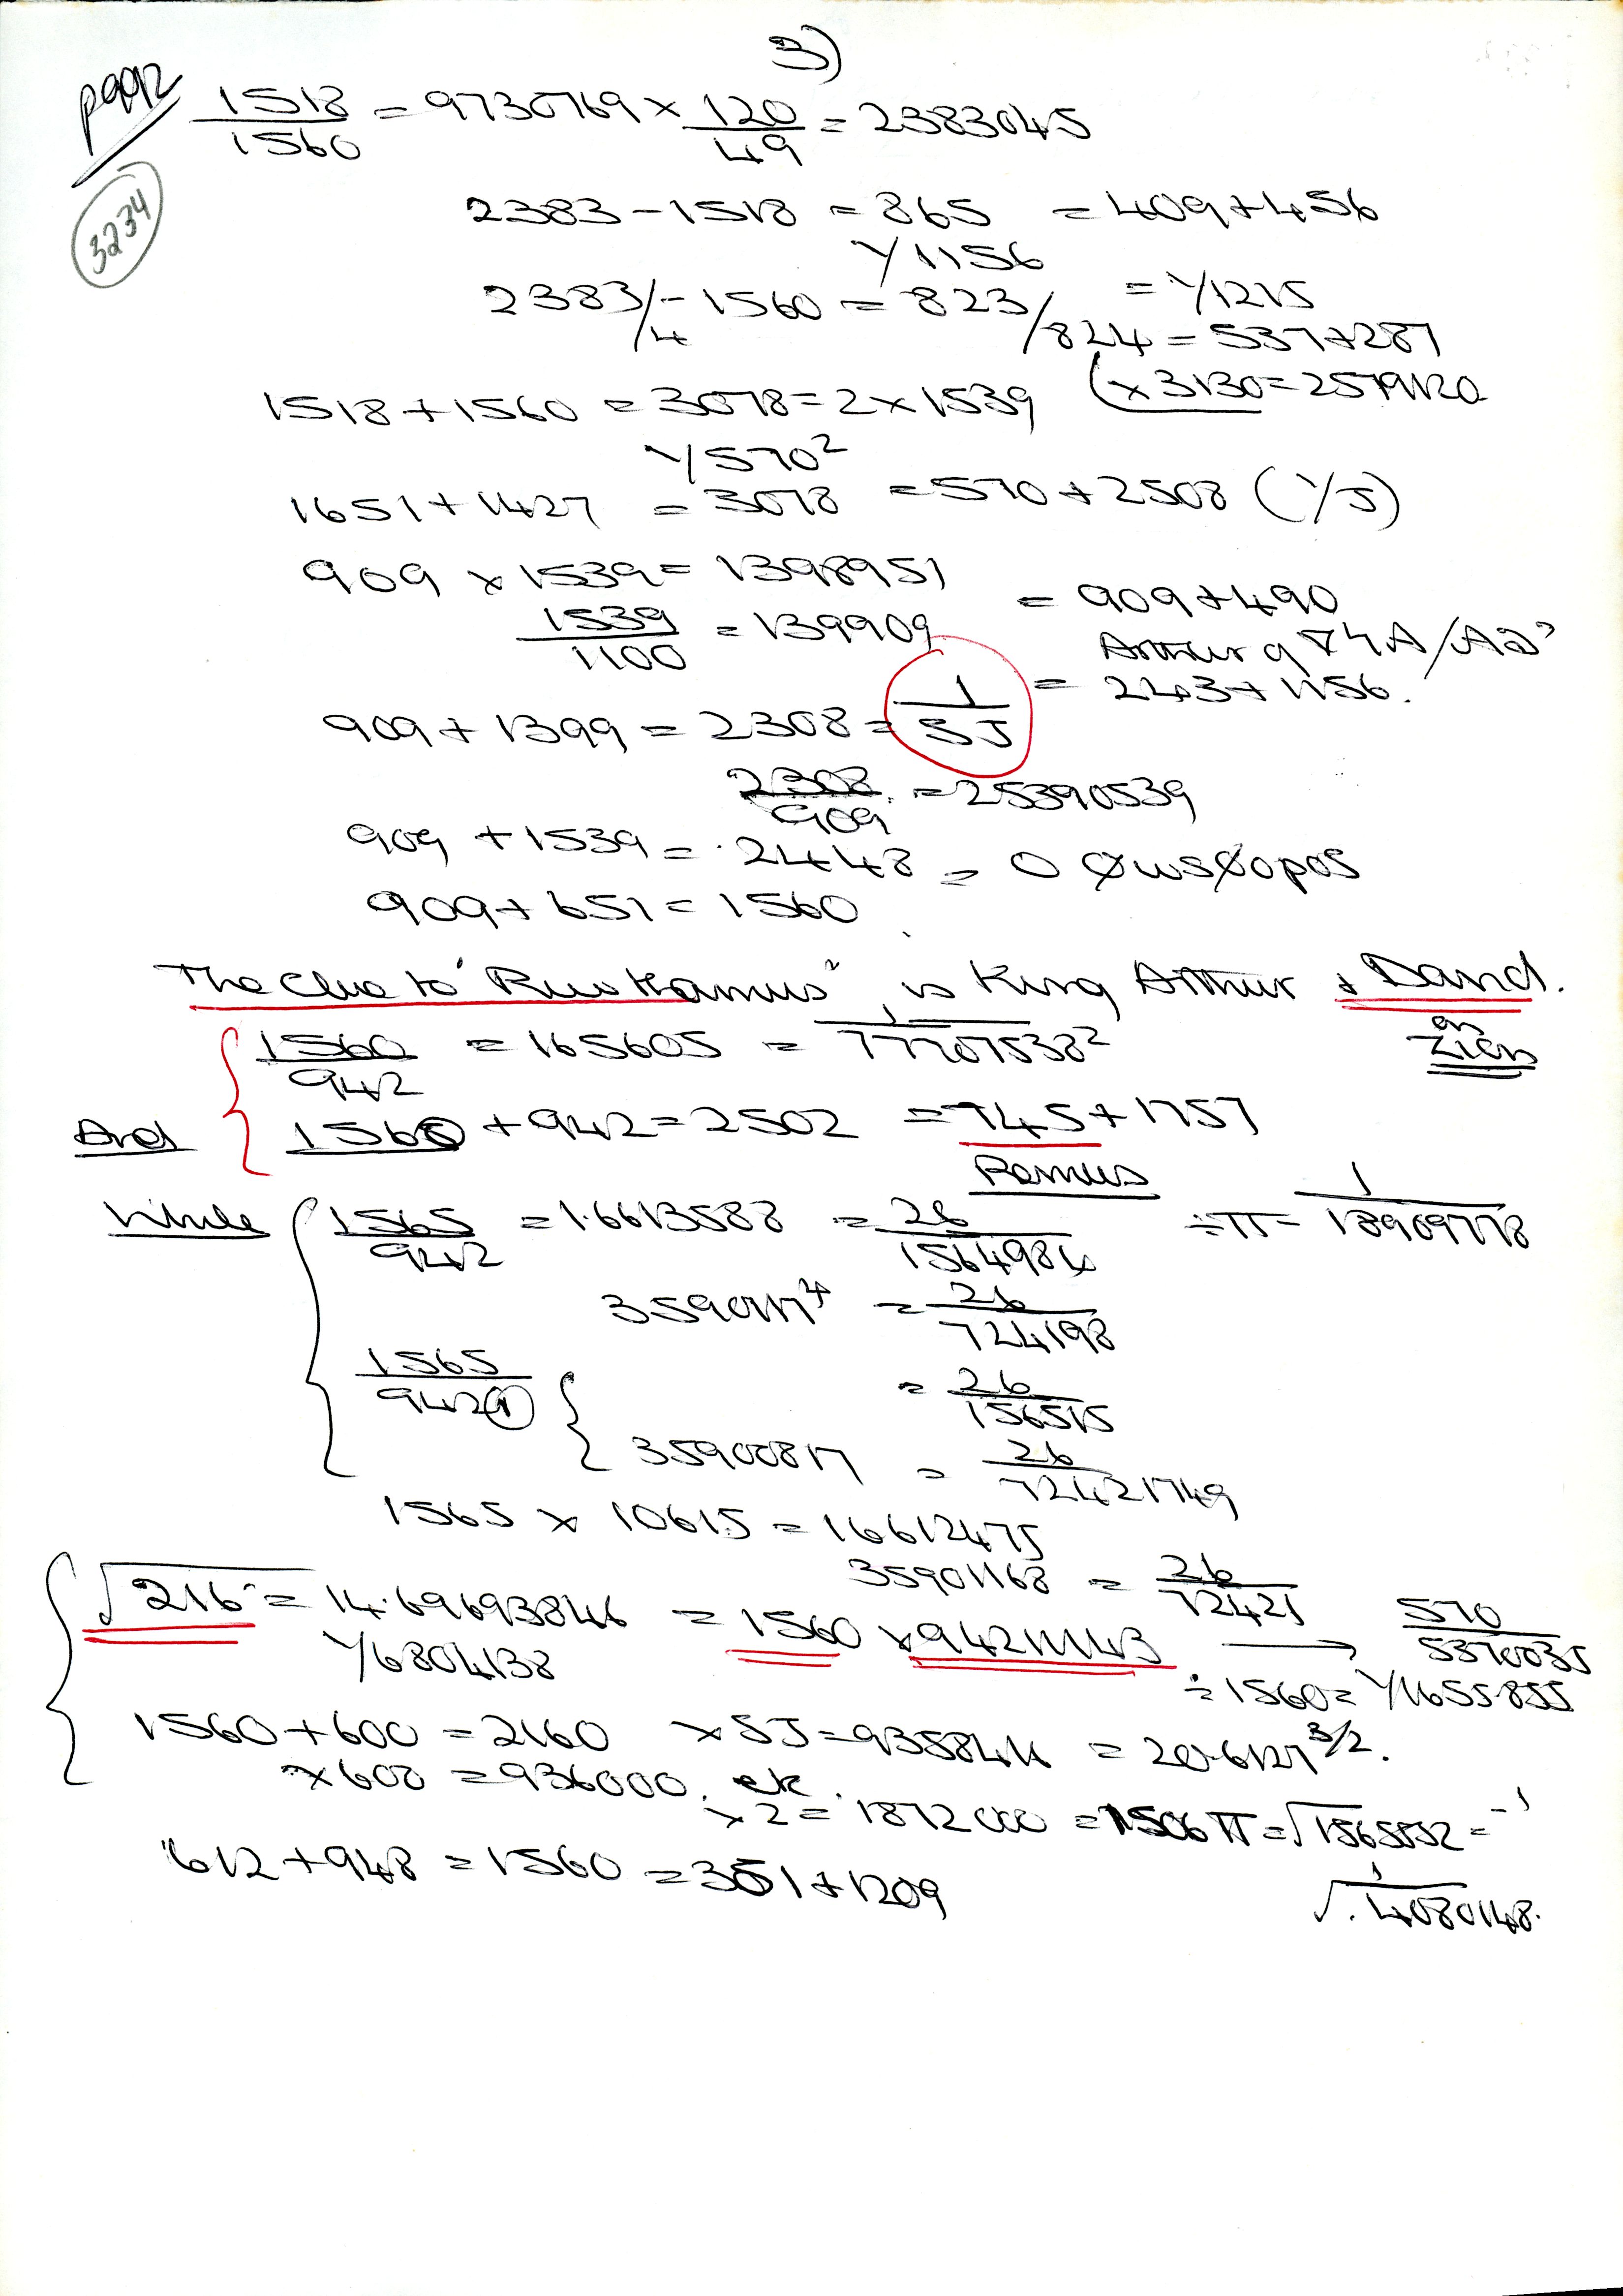 3)
p9912
3234
1518/1560 = 9730769 x 120/49 = 2383045
2383 - 1518 = 865 = 409 + 456
1/1156
2383/4 - 1560 = 823/824 = 1/1215
= 537 + 287
1518 + 1560 = 3078 = 2 x 1539 (x 3130 = 2579120
1/570²
1651 + 1427 = 3078 = 570 + 2508 (1/J)
909 x 1539 = 1398951
= 909 + 490
1539/1100 = 139909
Arthur
= 243 + 1156.
909 + 1399 = 2308 = 1/5J
2308/909 = 25390539
909 + 1539 = 2448 = 0
909 + 651 = 1560
The Clue to " " is King Arthur & David.
on Zion
1560/942 = 165605 = 1/77707538²
And 1560 + 942 = 2502 = 745 + 1757
Remus
While 1565/942 = 1.6613588 = 26/1564984 ÷ π = 1/18909778
3590917⁴ = 26/724198
1565/9421 = 26/156515
35900817 = 26/72421749
1565 x 10615 = 16612475
35901168 = 26/72421
√216 = 14.69693846 = 1560 x 94211143 → 570/5370035
1/6804138
÷ 1560 = 1/1655.855
1560 + 600 = 2160 x 5J = 9358414 = 20.6127 3/2.
x 600 = 936000. etc.
x 2 = 1872000 = 1506π = √1565552 = -1
612 + 948 = 1560 = 351 + 1209
1/√.4080148.